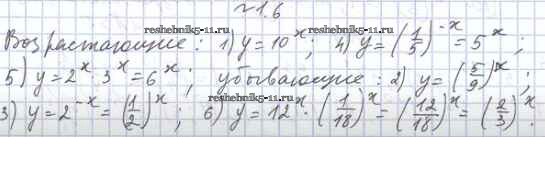 №1.6
Возрастающие: 1) y=10^x; 4) y=(1/5)^-x=5^x;
5) y=2^x·3^x=6^x; убывающие: 2) y=(5/9)^x;
3) y=2^-x=(1/2)^x; 6) y=12^x·(1/18)^x=(12/18)^x=(2/3)^x.
reshebnik5-11.ru
reshebnik5-11.ru
reshebnik5-11.ru
reshebnik5-11.ru